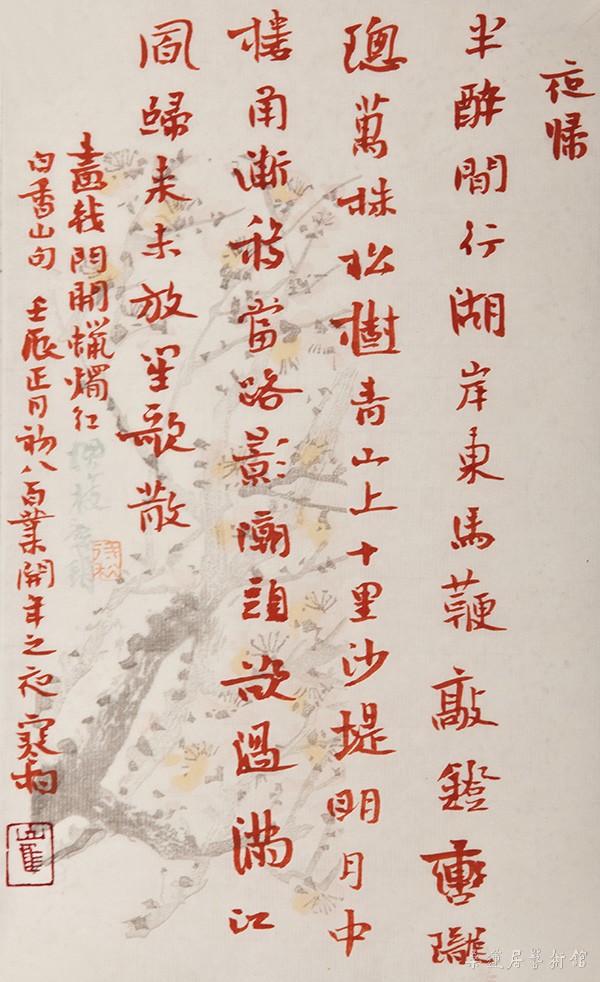 夜歸
半醉間行湖岸東馬鞭敲鐙轡瓏
璁萬株松樹青山上十里沙堤明月中
樓角漸移當路影潮頭欲過滿江
風歸來未放笙歌散
畫戟門開蠟燭紅
白香山句 壬辰正月初八百業開年之夜
居藝術館